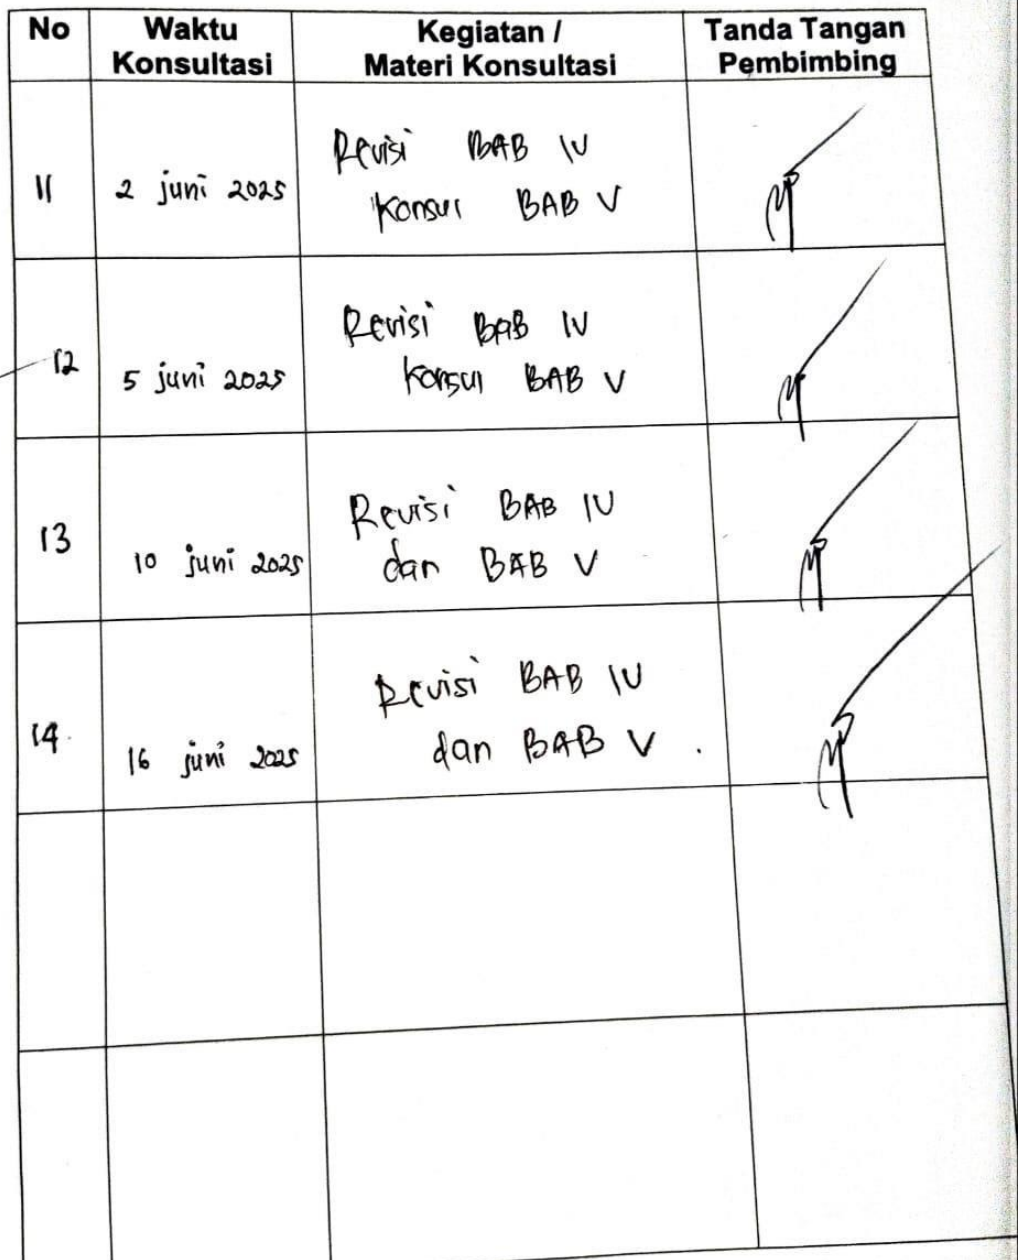 No Waktu Konsultasi Kegiatan / Materi Konsultasi Tanda Tangan Pembimbing
11 2 juni 2025 Revisi BAB IV
Konsul BAB V
12 5 juni 2025 Revisi BAB IV
Konsul BAB V
13 10 juni 2025 Revisi BAB IV
dan BAB V
14. 16 juni 2025 Revisi BAB IV
dan BAB V .